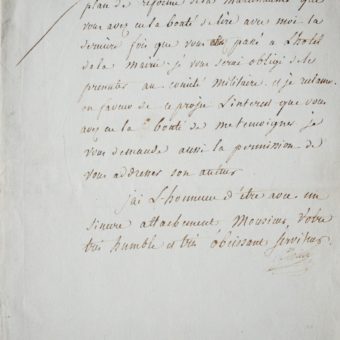 plan de reforme de la marechaussé que
vous avez eu la bonté de lire avec moi la
derniere fois que vous passé a L'hotel
de la mairie. je vous serai obligé de le
presenter au comité militaire et je reclame
en faveur de ce projet L'interest que vous
avez eu la bonté de me temoigner je
vous demande aussi la permission de
vous addresser son auteur.
j'ai L'honneur d'être avec un
sincere attachement Monsieur, Votre
très humble et très obeissant serviteur.